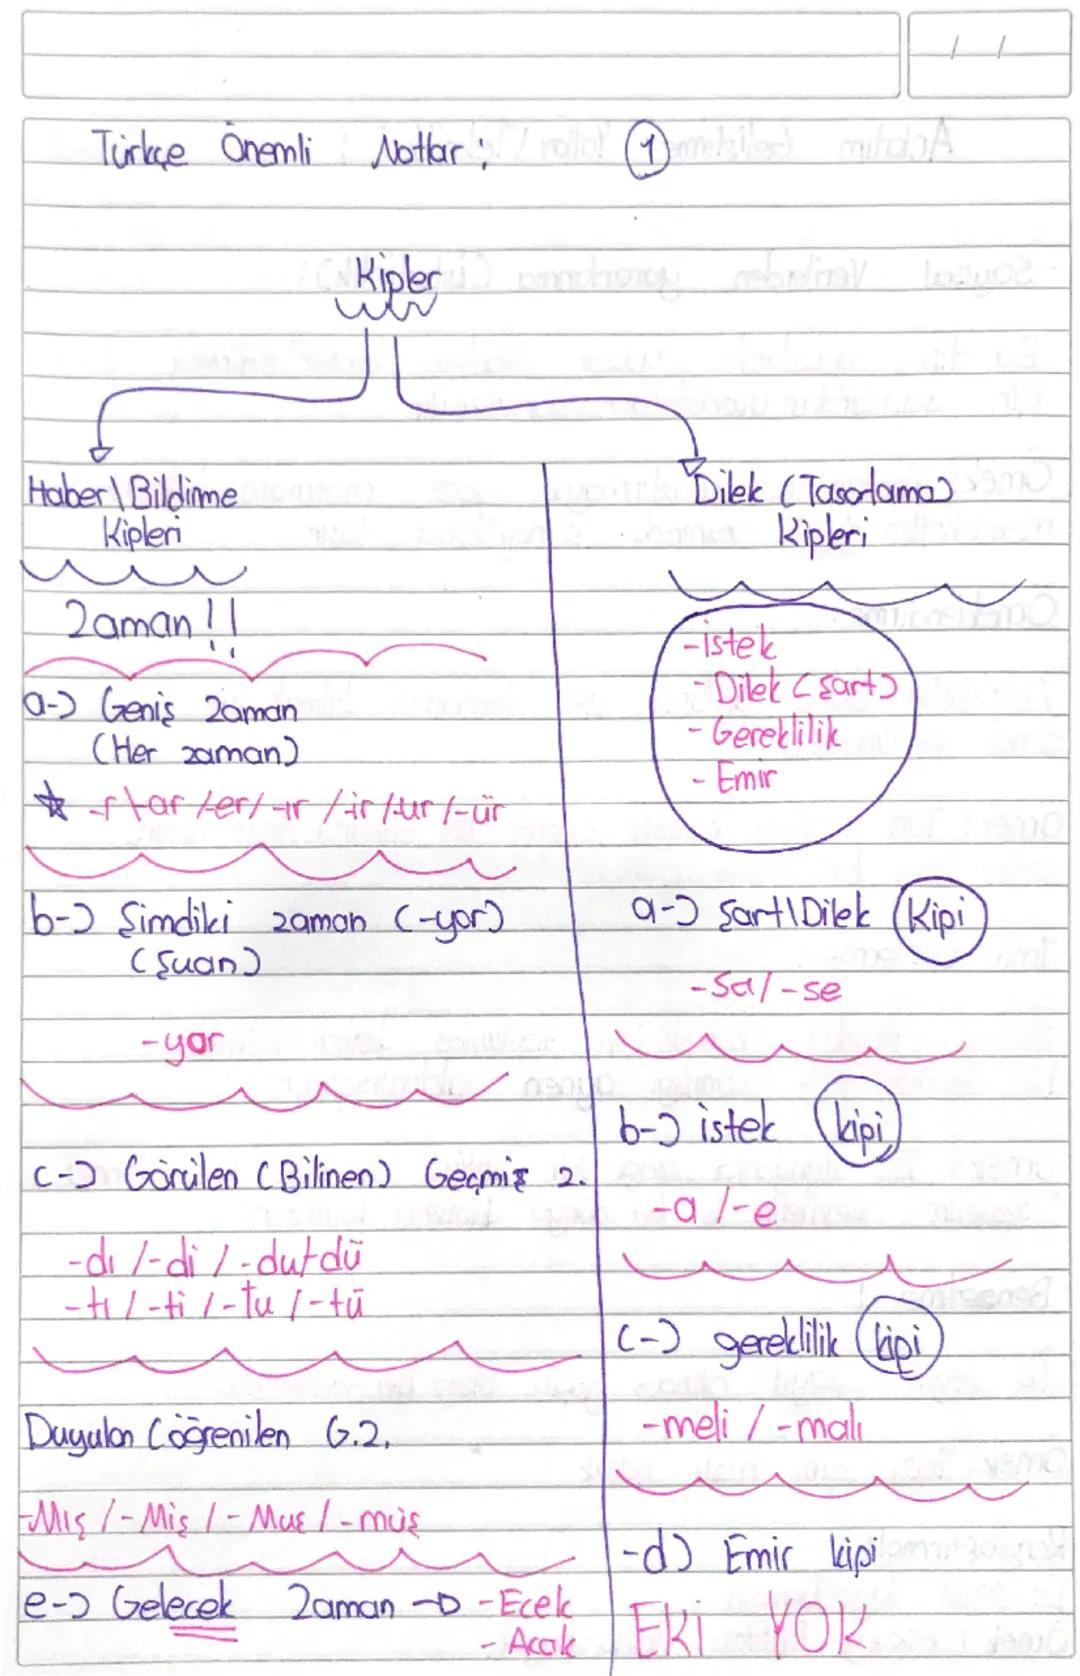 / /
Türkçe Önemli Notlar : 1
Kipler
Haber \ Bildirme
Kipleri
Zaman !!
a-) Geniş zaman
(Her zaman)
☆ -r \-ar /-er/ -ır /-ir /-ur /-ür
b-) Şimdiki zaman (-yor)
(Şuan)
-yor
c-) Görülen (Bilinen) Geçmiş z.
-dı /-di / -du/-dü
-tı / -ti / -tu / -tü
Duyulan (öğrenilen G.Z.
-Mış / -Miş / -Muş / -müş
e-) Gelecek Zaman → -Ecek
-Acak
Dilek (Tasarlama)
Kipleri
-istek
- Dilek (şart)
- Gereklilik
- Emir
a-) Şart\Dilek Kipi
-sa/ -se
b-) istek kipi
-a /-e
c-) gereklilik kipi
-meli / -malı
-d) Emir kipi
EKİ YOK